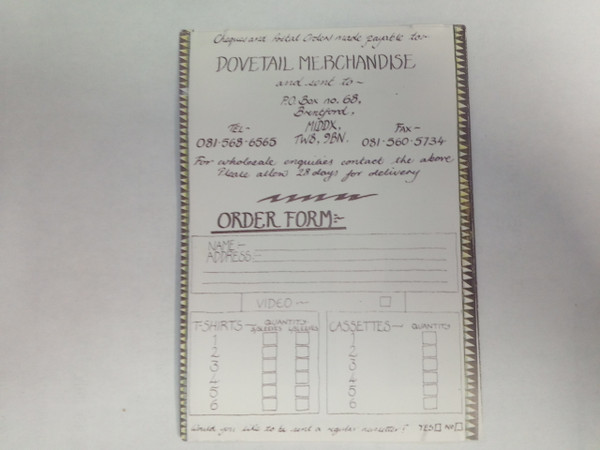 Cheques and Postal Orders made payable to:~
DOVETAIL MERCHANDISE
and sent to ~
P.O. Box no. 68,
Brentford,
MIDDX,
TW8, 9BN.
TEL~
081-568-6565
FAX~
081-560-5734
For wholesale enquiries contact the above
Please allow 28 days for delivery
ORDER FORM:~
NAME ~
ADDRESS:~
VIDEO ~
T-SHIRTS ~ QUANTITY
S.SLEEVES L.SLEEVES
1
2
3
4
5
6
CASSETTES ~ QUANTITY
1
2
3
4
5
6
Would you like to be sent a regular newsletter? YES NO